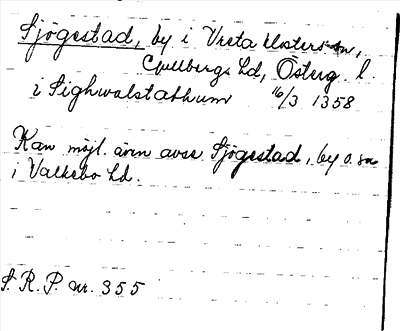 Sjögestad, by i Vreta klosters sn,
Gullbergs hd, Östg. l.
i Sighwalstathum 16/3 1358
Kan möjl. även avse Sjögestad, by o. sn
i Valkebo hd.
S. R. P. nr. 355